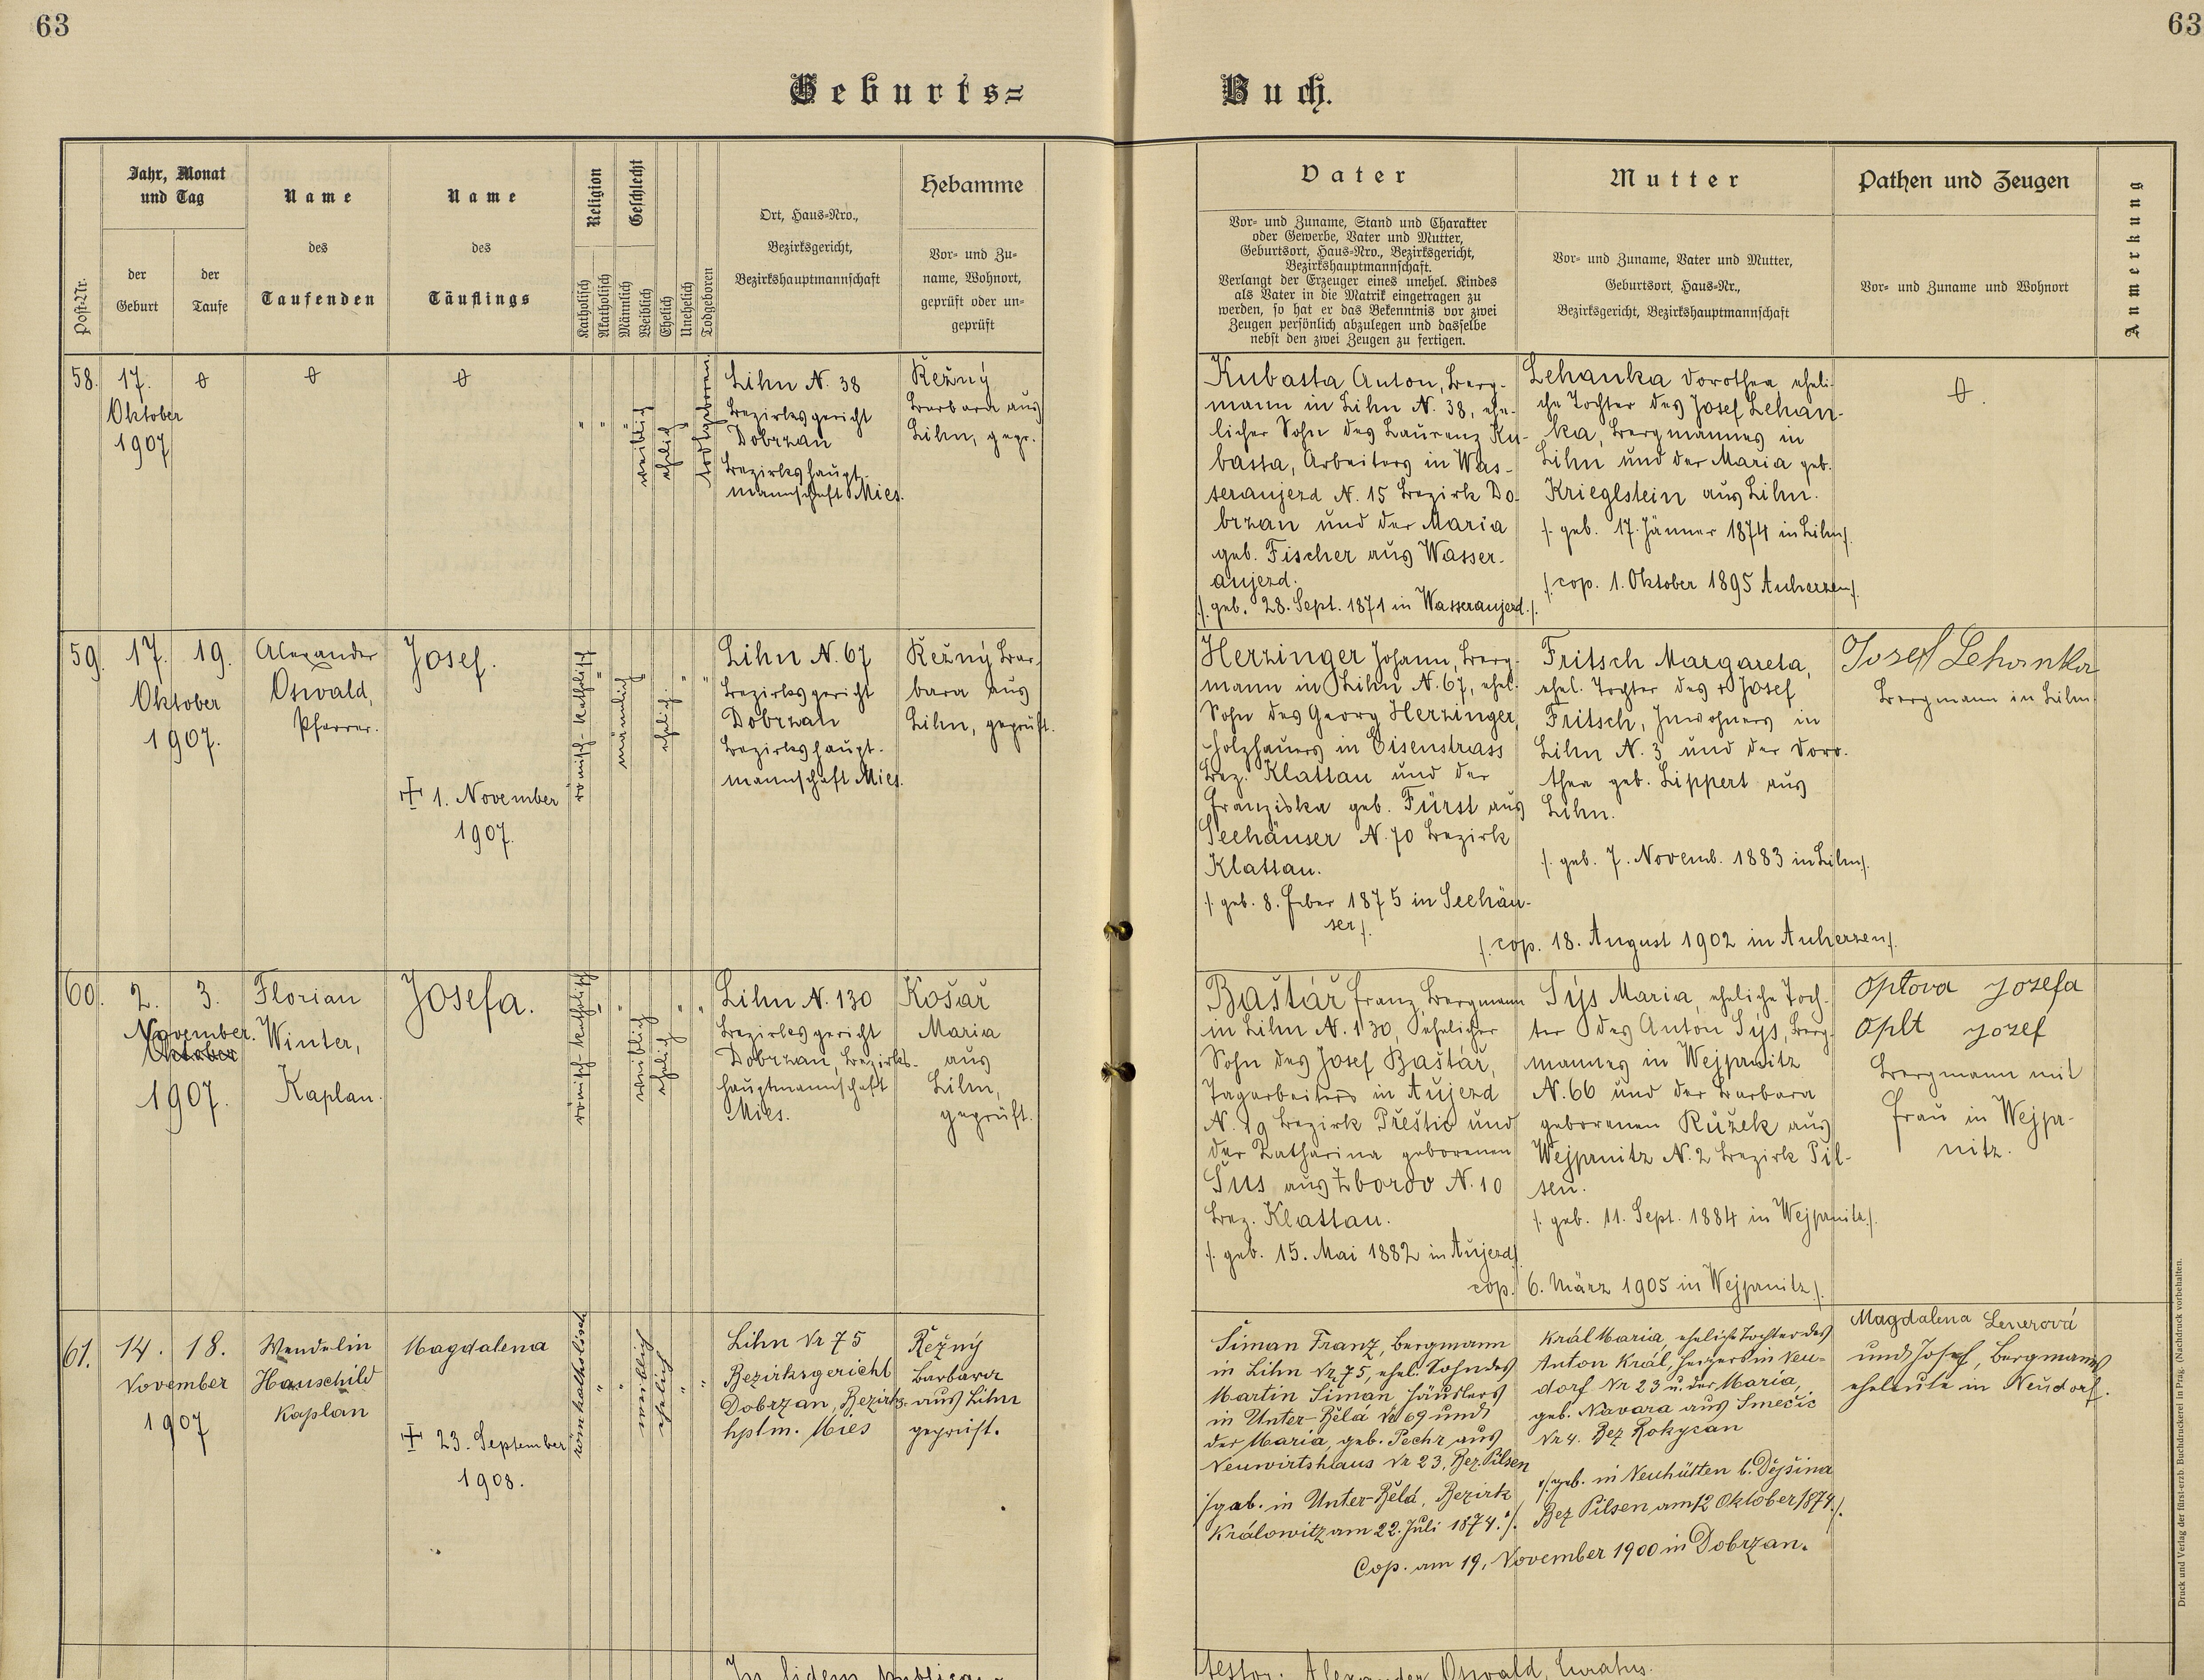 63
63
Geburts=
Buch.
Post-Nr.
Jahr, Monat
und Tag
der
Geburt
der
Taufe
Name
des
Taufenden
Name
des
Täuflings
Religion
Katholisch
Akatholisch
Geschlecht
Männlich
Weiblich
Ehelich
Unehelich
Todgeboren
Ort, Haus=Nro.,
Bezirksgericht,
Bezirkshauptmannschaft
Hebamme
Vor- und Zu-
name, Wohnort,
geprüft oder un-
geprüft
Vater
Vor- und Zuname, Stand und Charakter
oder Gewerbe, Vater und Mutter,
Geburtsort, Haus=Nro., Bezirksgericht,
Bezirkshauptmannschaft.
Verlangt der Erzeuger eines unehel. Kindes
als Vater in die Matrik eingetragen zu
werden, so hat er das Bekenntnis vor zwei
Zeugen persönlich abzulegen und dasselbe
nebst den zwei Zeugen zu fertigen.
Mutter
Vor- und Zuname, Vater und Mutter,
Geburtsort, Haus=Nr.,
Bezirksgericht, Bezirkshauptmannschaft
Pathen und Zeugen
Vor- und Zuname und Wohnort
Anmerkung
58.
17.
Oktober
1907
weiblich
ehelich
todtgeboren
Lihn N. 38
Bezirksgericht
Dobrzan
Bezirkshaupt-
mannschaft Mies.
Režný
Barbara aus
Lihn, gepr.
Kubasta Anton, Berg-
mann in Lihn N. 38, ehe-
licher Sohn des Laurenz Ku-
basta, Arbeiters in Was-
seraujezd N. 15 Bezirk Do-
brzan und der Maria
geb. Fischer aus Wasser-
aujezd.
/. geb. 28. Sept. 1871 in Wasseraujezd./.
Lehanka Dorothea, eheli-
che Tochter des Josef Lehan-
ka, Bergmannes in
Lihn und der Maria geb.
Krieglstein aus Lihn.
/. geb. 17. Jänner 1874 in Lihn/.
/. cop. 1. Oktober 1895 Auherzen/.
59.
17. 19.
Oktober
1907.
Alexander
Oswald,
Pfarrer.
Josef.
+ 1. November
1907.
römisch-katholisch
männlich
ehelich
Lihn N. 67
Bezirksgericht
Dobrzan
Bezirkshaupt-
mannschaft Mies.
Režný Bar-
bara aus
Lihn, geprüft.
Herzinger Johann, Berg-
mann in Lihn N. 67, ehel.
Sohn des Georg Herzinger,
Holzhauers in Eisenstrass
Bez. Klattau und der
Franziska geb. Fürst aus
Seehäuser N. 70 Bezirk
Klattau.
/. geb. 8. Feber 1875 in Seehäu-
ser/.
Fritsch Margareta,
ehel. Tochter des + Josef
Fritsch, Inwohners in
Lihn N. 3 und der Doro-
thea geb. Lippert aus
Lihn.
/. geb. 7. Novemb. 1883 in Lihn/.
/. cop. 18. August 1902 in Auherzen/.
Josef Lehanka
Bergmann in Lihn.
60.
2. 3.
November.
Oktober
1907.
Florian
Winter,
Kaplan.
Josefa.
römisch-katholisch
weiblich
ehelich
Lihn N. 130
Bezirksgericht
Dobrzan, Bezirks-
hauptmannschaft
Mies.
Košař
Maria
aus
Lihn,
geprüft.
Baštář Franz, Bergmann
in Lihn N. 130, ehelicher
Sohn des Josef Baštář,
Tagarbeiters in Aujezd
N. 19 Bezirk Přeštic und
der Katharina geborenen
Šus aus Zborov N. 10
Bez. Klattau.
/. geb. 15. Mai 1882 in Aujezd/.
Sýs Maria, eheliche Toch-
ter des Anton Sýs, Berg-
mannes in Wejprnitz
N. 66 und der Barbara
geborenen Růžek aus
Wejprnitz N. 2 Bezirk Pil-
sen.
/. geb. 11. Sept. 1884 in Wejprnitz/.
cop. 6. März 1905 in Wejprnitz/.
Optova Jozefa
Oplt Jozef
Bergmann mit
Frau in Wejpr-
nitz.
61.
14. 18.
November
1907
Wendelin
Hauschild
Kaplan
Magdalena
+ 23. September
1908.
römkatholisch
weiblich
ehelich
Lihn Nr 75
Bezirksgericht
Dobrzan, Bezirks-
hptm. Mies
Režný
Barbara
aus Lihn
geprüft.
Šiman Franz, Bergmann
in Lihn Nr. 75, ehel. Sohn des
Martin Šiman Häuslers
in Unter-Bělá Nr 69 und
der Maria, geb. Pechr aus
Neuwirtshaus Nr 23, Bez Pilsen
/. geb. in Unter-Bělá, Bezirk
Králowitz am 22. Juli 1874./.
Král Maria, eheliche Tochter des
Anton Král, Hegers in Neu-
dorf Nr 23 u. der Maria,
geb. Navara aus Smečic
Nr 4. Bez Rokycan
/. geb. in Neuhütten b. Dejšina
Bez Pilsen am 12 Oktober 1874./.
Cop. am 19. November 1900 in Dobrzan.
Magdalena Lenerová
und Josef, Bergmanns
eheleute in Neudorf.
In fidem publicam
testor: Alexander Oswald, Curatus.
Druck und Verlag der fürst-erzb. Buchdruckerei in Prag. (Nachdruck vorbehalten.